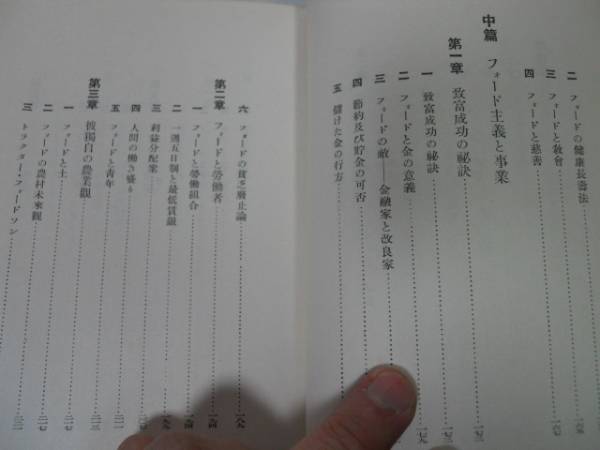 二 フォードの健康長壽法
三 フォードと教會
四 フォードと慈善
中篇 フォード主義と事業
第一章 致富成功の祕訣
一 致富成功の祕訣
二 フォードと金の意義
三 フォードの敵——金融家と改良家
四 節約及び貯金の可否
五 儲けた金の行方
六 フォードの貧乏廢止論
第二章 フォードと勞働者
一 フォードと勞働組合
二 一週五日制と最低賃銀
三 利益分配案
四 人間の働き盛り
五 フォードと青年
第三章 彼獨自の農業觀
一 フォードと土
二 フォードの農村未來觀
三 トラクター・フォードソン